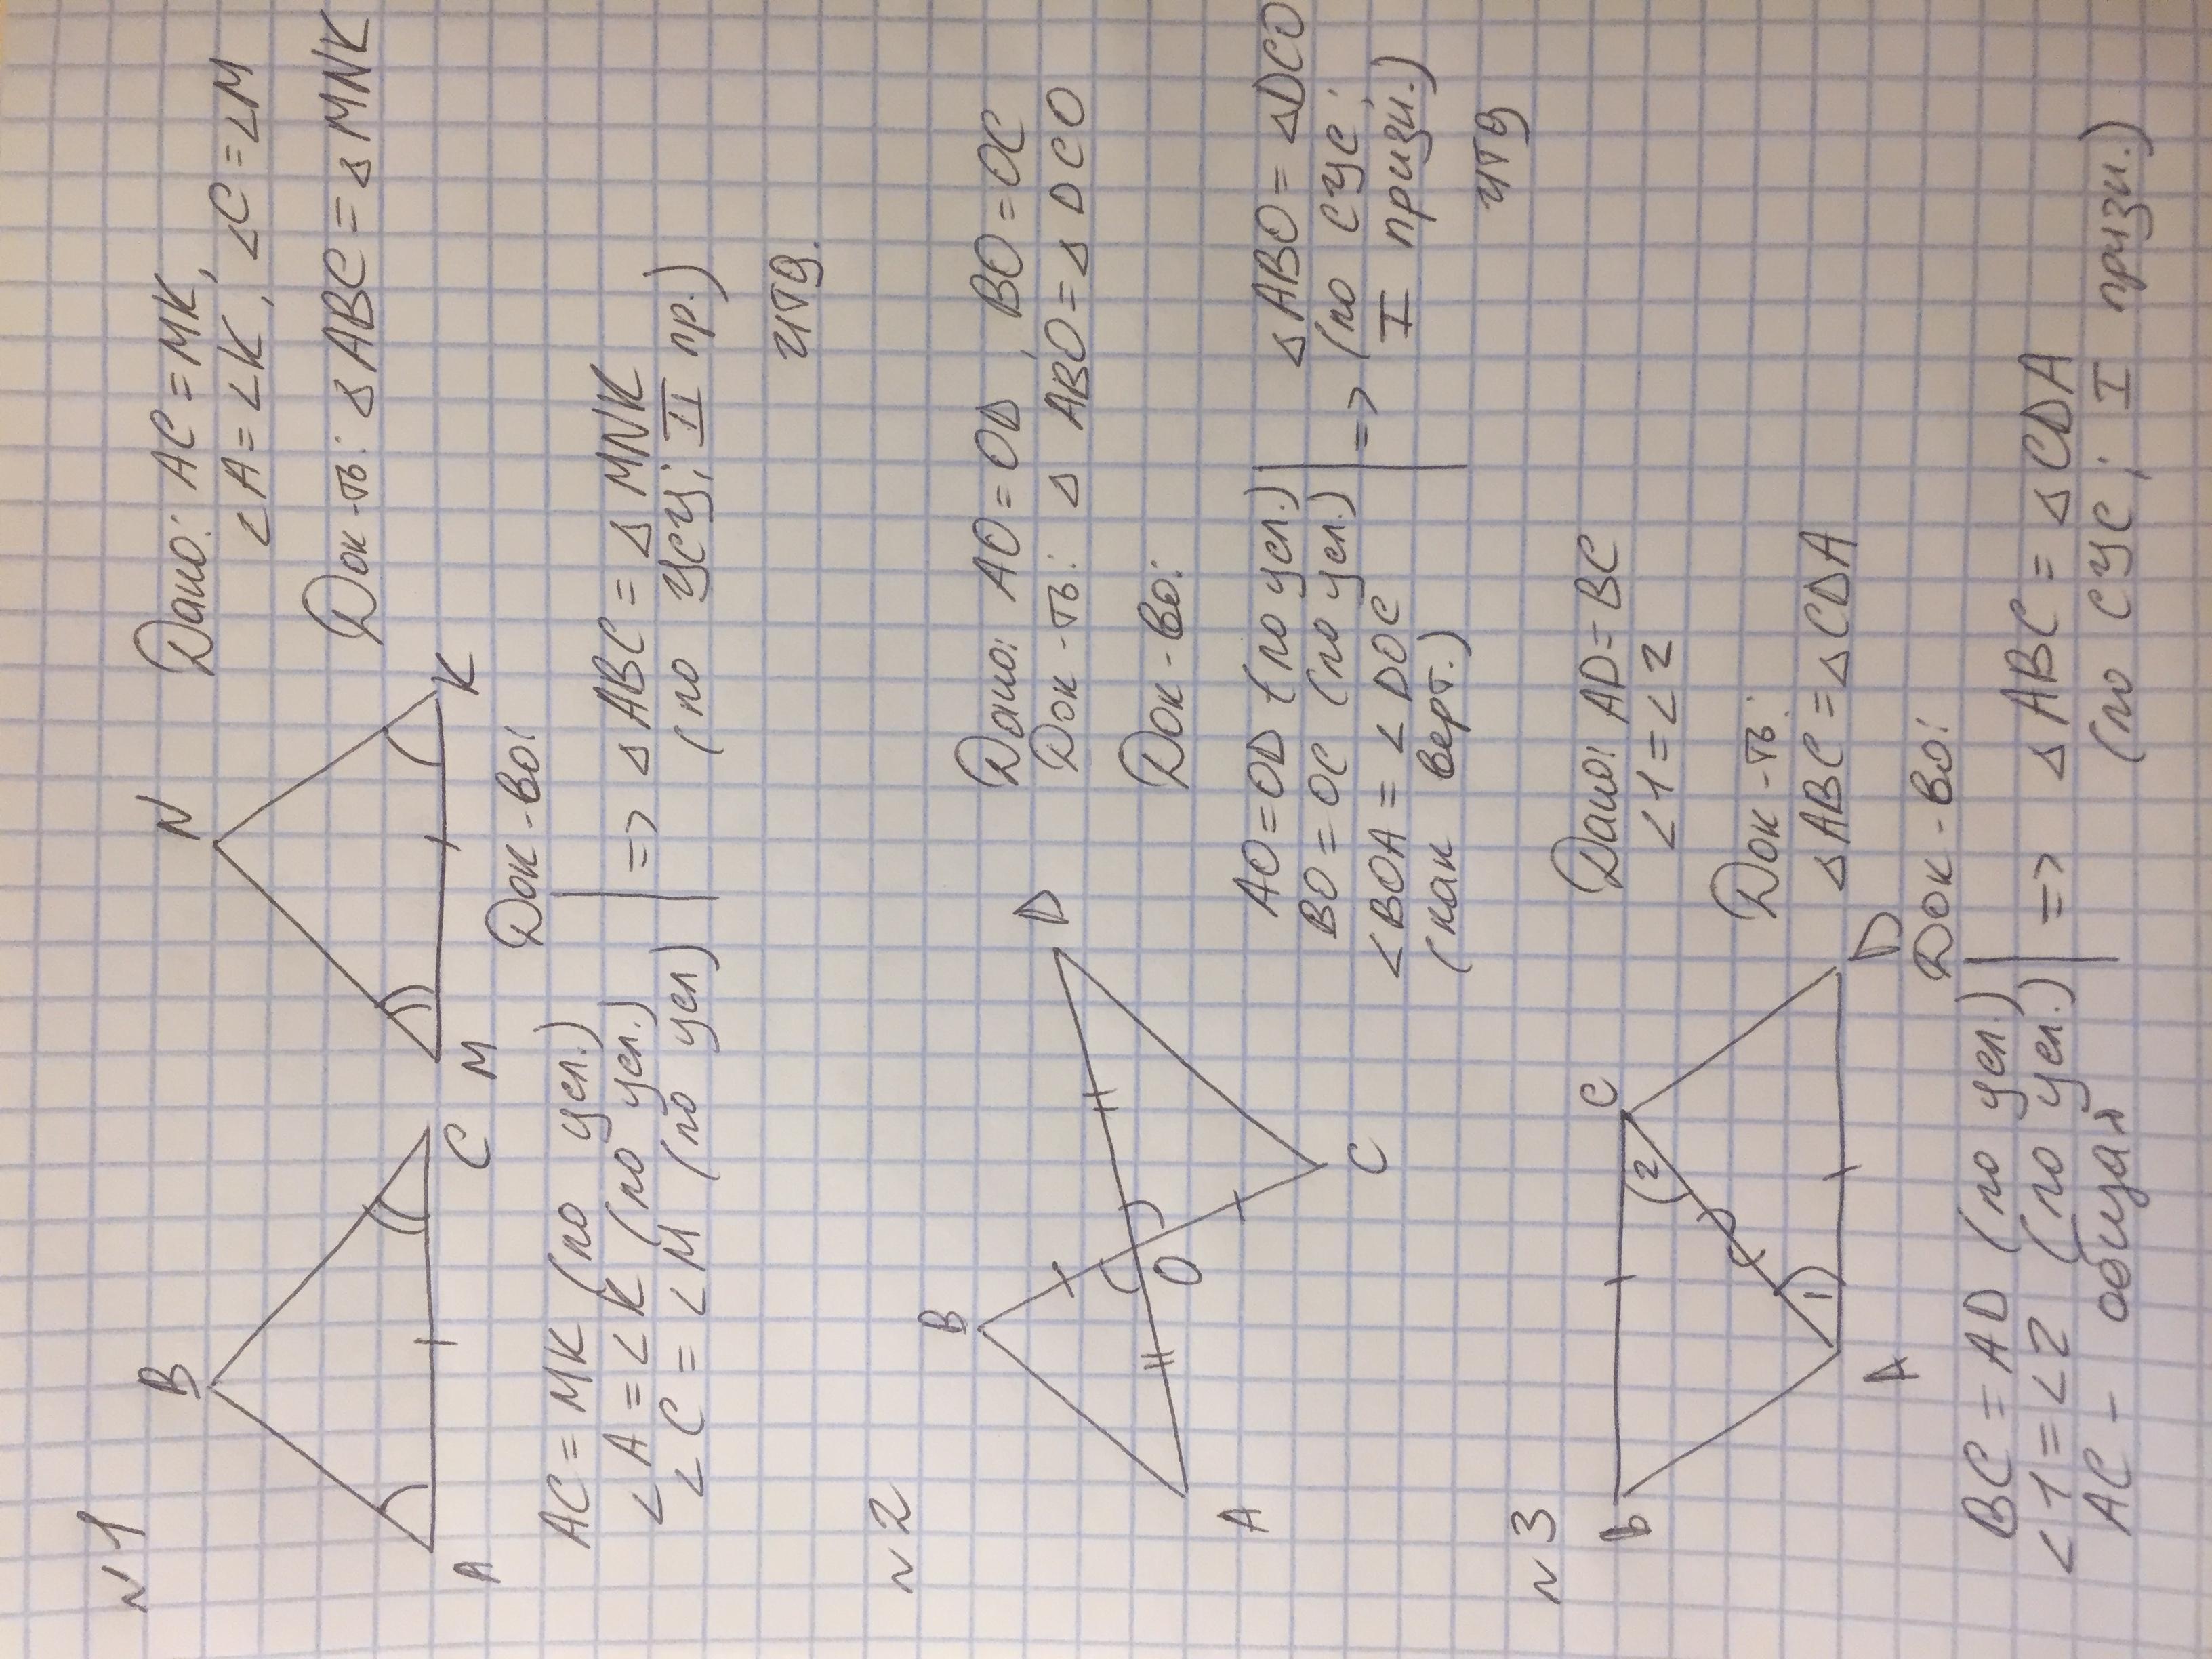 N1
B
N
A
C
M
K
Дано: AC = MK,
∠A = ∠K, ∠C = ∠M
Док-ть: △ABC = △MNK
Док-во:
AC = MK (по усл.)
∠A = ∠K (по усл.)
∠C = ∠M (по усл)
=> △ABC = △MNK
(по УСУ; II пр.)
чтд.
N2
B
D
O
A
C
Дано: AO = OD, BO = OC
Док-ть: △ABO = △DCO
Док-во:
AO = OD (по усл.)
BO = OC (по усл.)
∠BOA = ∠DOC
(как верт.)
=>
△ABO = △DCO
(по СУС;
I призн.)
чтд
N3
B
C
2
1
A
D
Дано: AD = BC
∠1 = ∠2
Док-ть:
△ABC = △CDA
Док-во:
BC = AD (по усл.)
∠1 = ∠2 (по усл.)
AC - общая
=> △ABC = △CDA
(по СУС; I призн.)